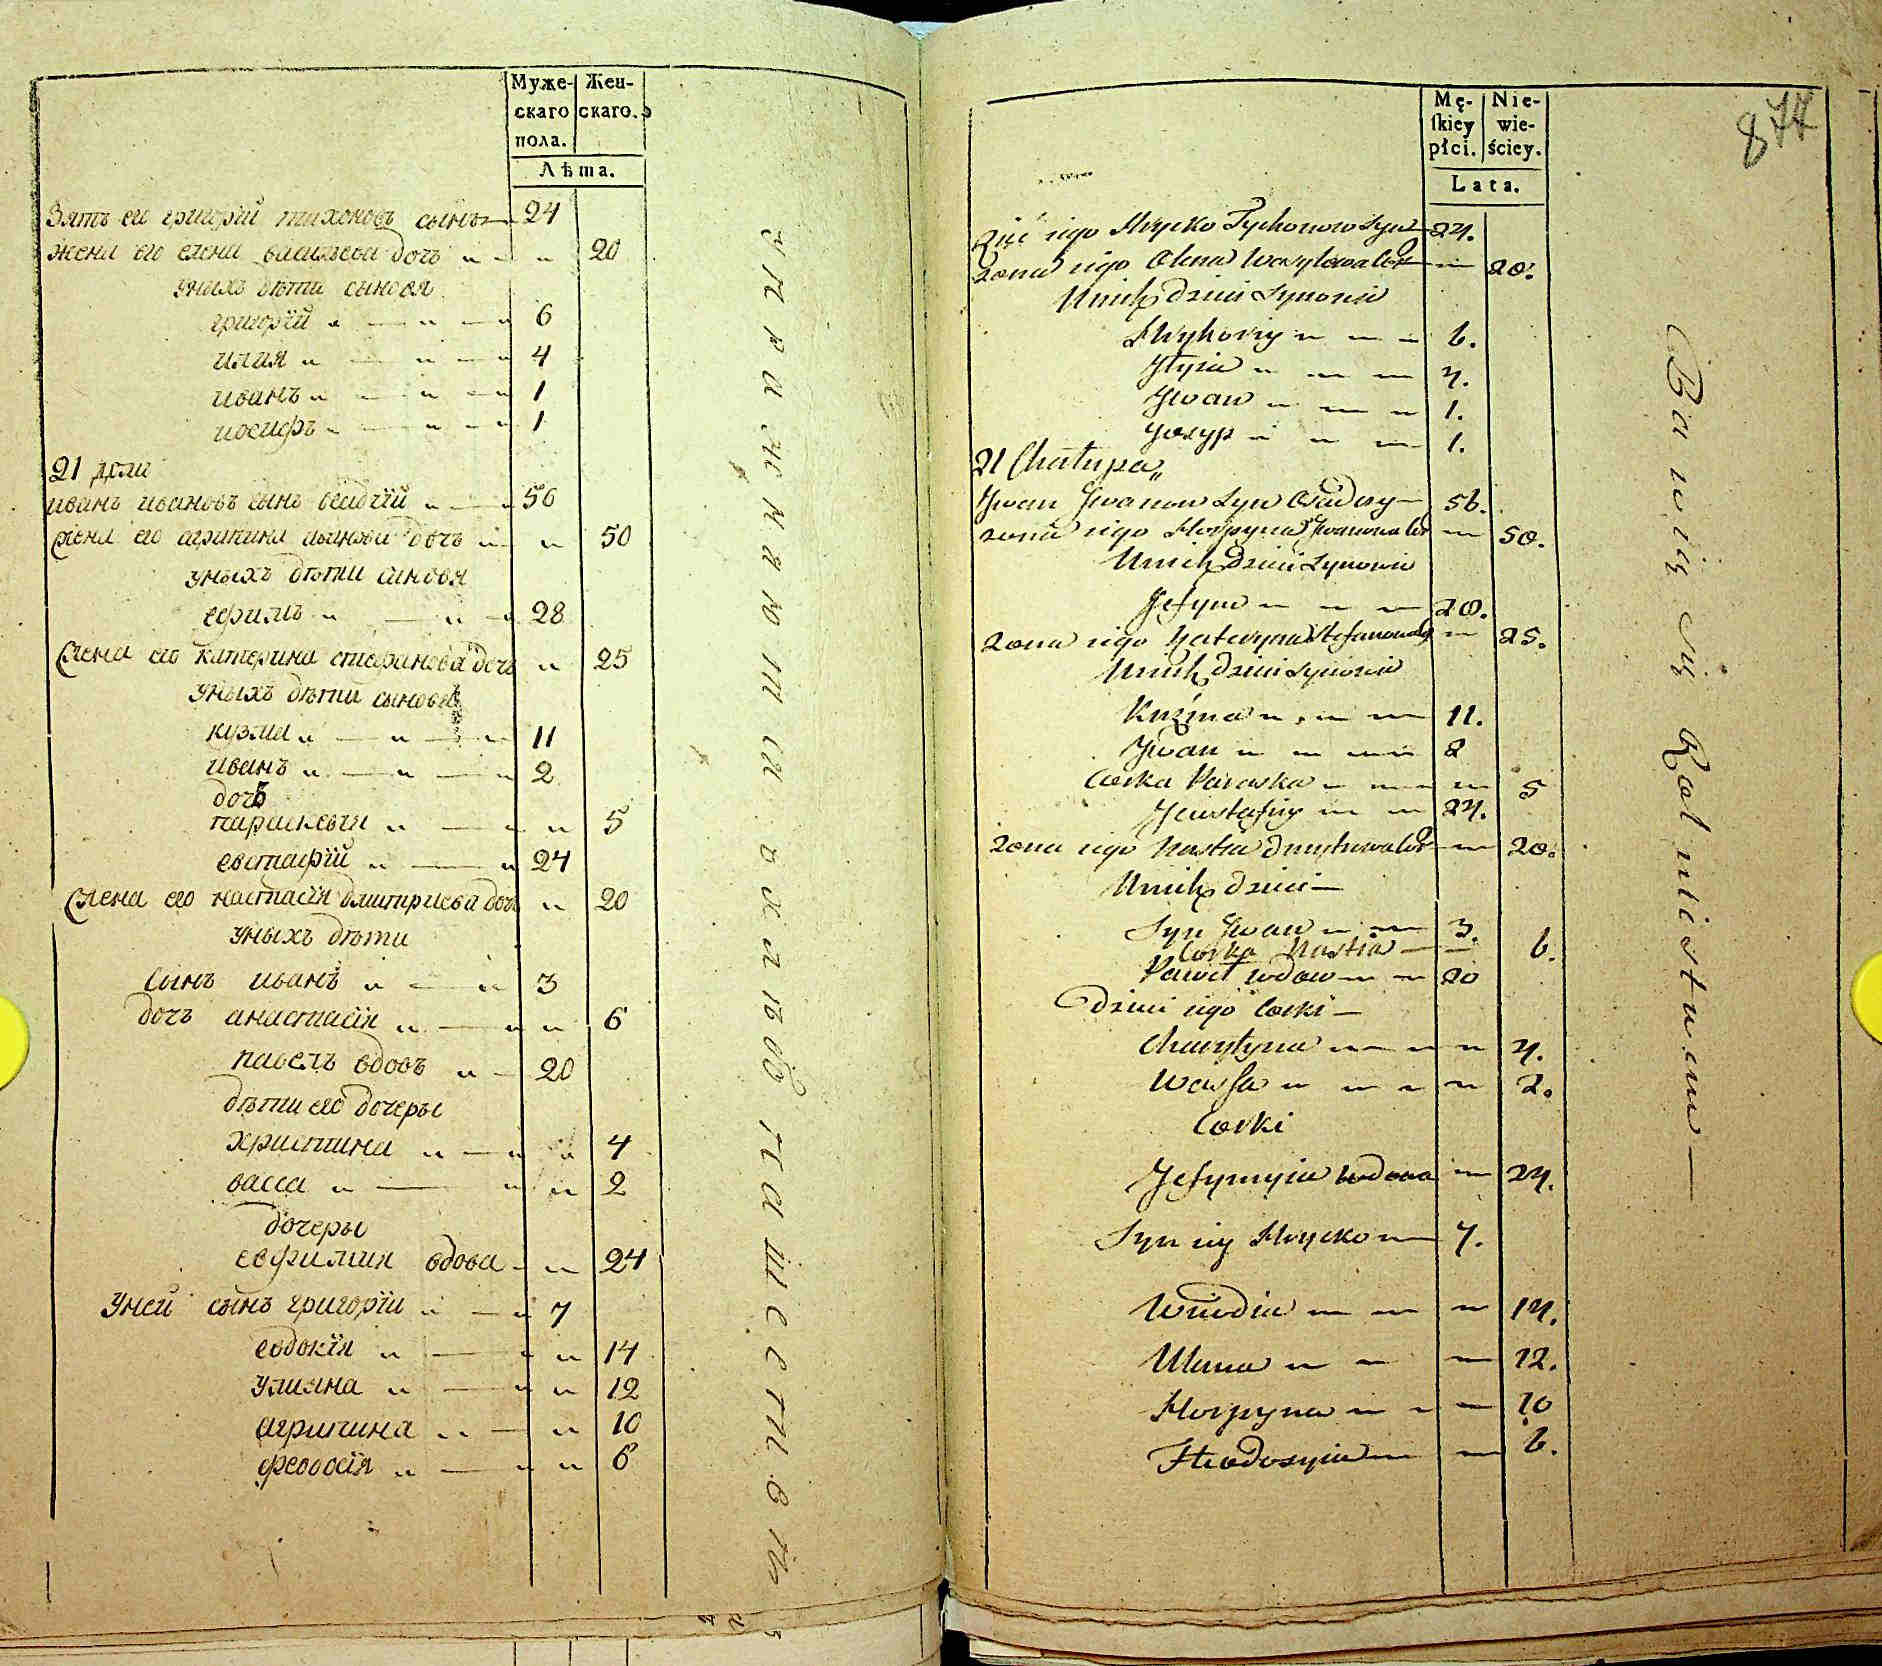 Муже-
скаго
пола.
Жен-
скаго.
Лѣта.
Зять ег григорїй тихоновъ сынъ 24
жена его елена васильева дочь 20
Уныхъ дѣти сыновя
григорїй 6
илия 4
иванъ 1
иосифъ 1
21 доли
иванъ ивановъ сынъ осадчїй 56
жена его агрипина иванова дочъ 50
уныхъ дѣти синовя
ефимъ 28
жена его катерина стефанова дочъ 25
уныхъ дѣти сыновья
кузма 11
иванъ 2
дочъ
параскевїя 5
евстафїй 24
жена его настасїя дмитриева дочъ 20
уныхъ дѣти
сынъ иванъ 3
дочъ анастасїя 6
павелъ вдовъ 20
дѣти его дочеры
христина 4
васса 2
дочеры
евфимия вдова 24
уней сынъ григорїи 7
евдокїя 14
улияна 12
агрипина 10
феодосїя 6
упражняюмса
Mę-
ſkiey
płci.
Nie-
wie-
ściey.
Lata.
877
Zięć iego Hrycko Tychonow Syn 24.
żona iego Olena Wasylowa Cor 20.
Unich dzieci Synowie
Hryhory 6.
Jlyia 4.
Jwan 1.
Josyp 1.
21 Chałupa
Jwan Jwanow Syn Osadczy 56.
żona iego Horpyna Jwanowa Cor 50.
Unich Dzieci Synowie
Jefym 28.
żona iego Kateryna Stefanowa 25.
Unich dzieci Synowie
Kuźma 11.
Jwan 2
Corka Paraska 5
Jewstafiy 24.
żona iego Nastia Dmytrowa Cor 20.
Unich dzieci
Syn Jwan 3.
Corka Nastia 6.
Paweł wdow 20
Dzieci iego Corki
Chrystyna 4.
Wassa 2.
Corki
Jefymyia wdowa 24.
Syn iey Hrycko 7.
Wiwdia 14.
Uliana 12.
Horpyna 10
Fteodosyia 6.
Bawią się Rolnictwem